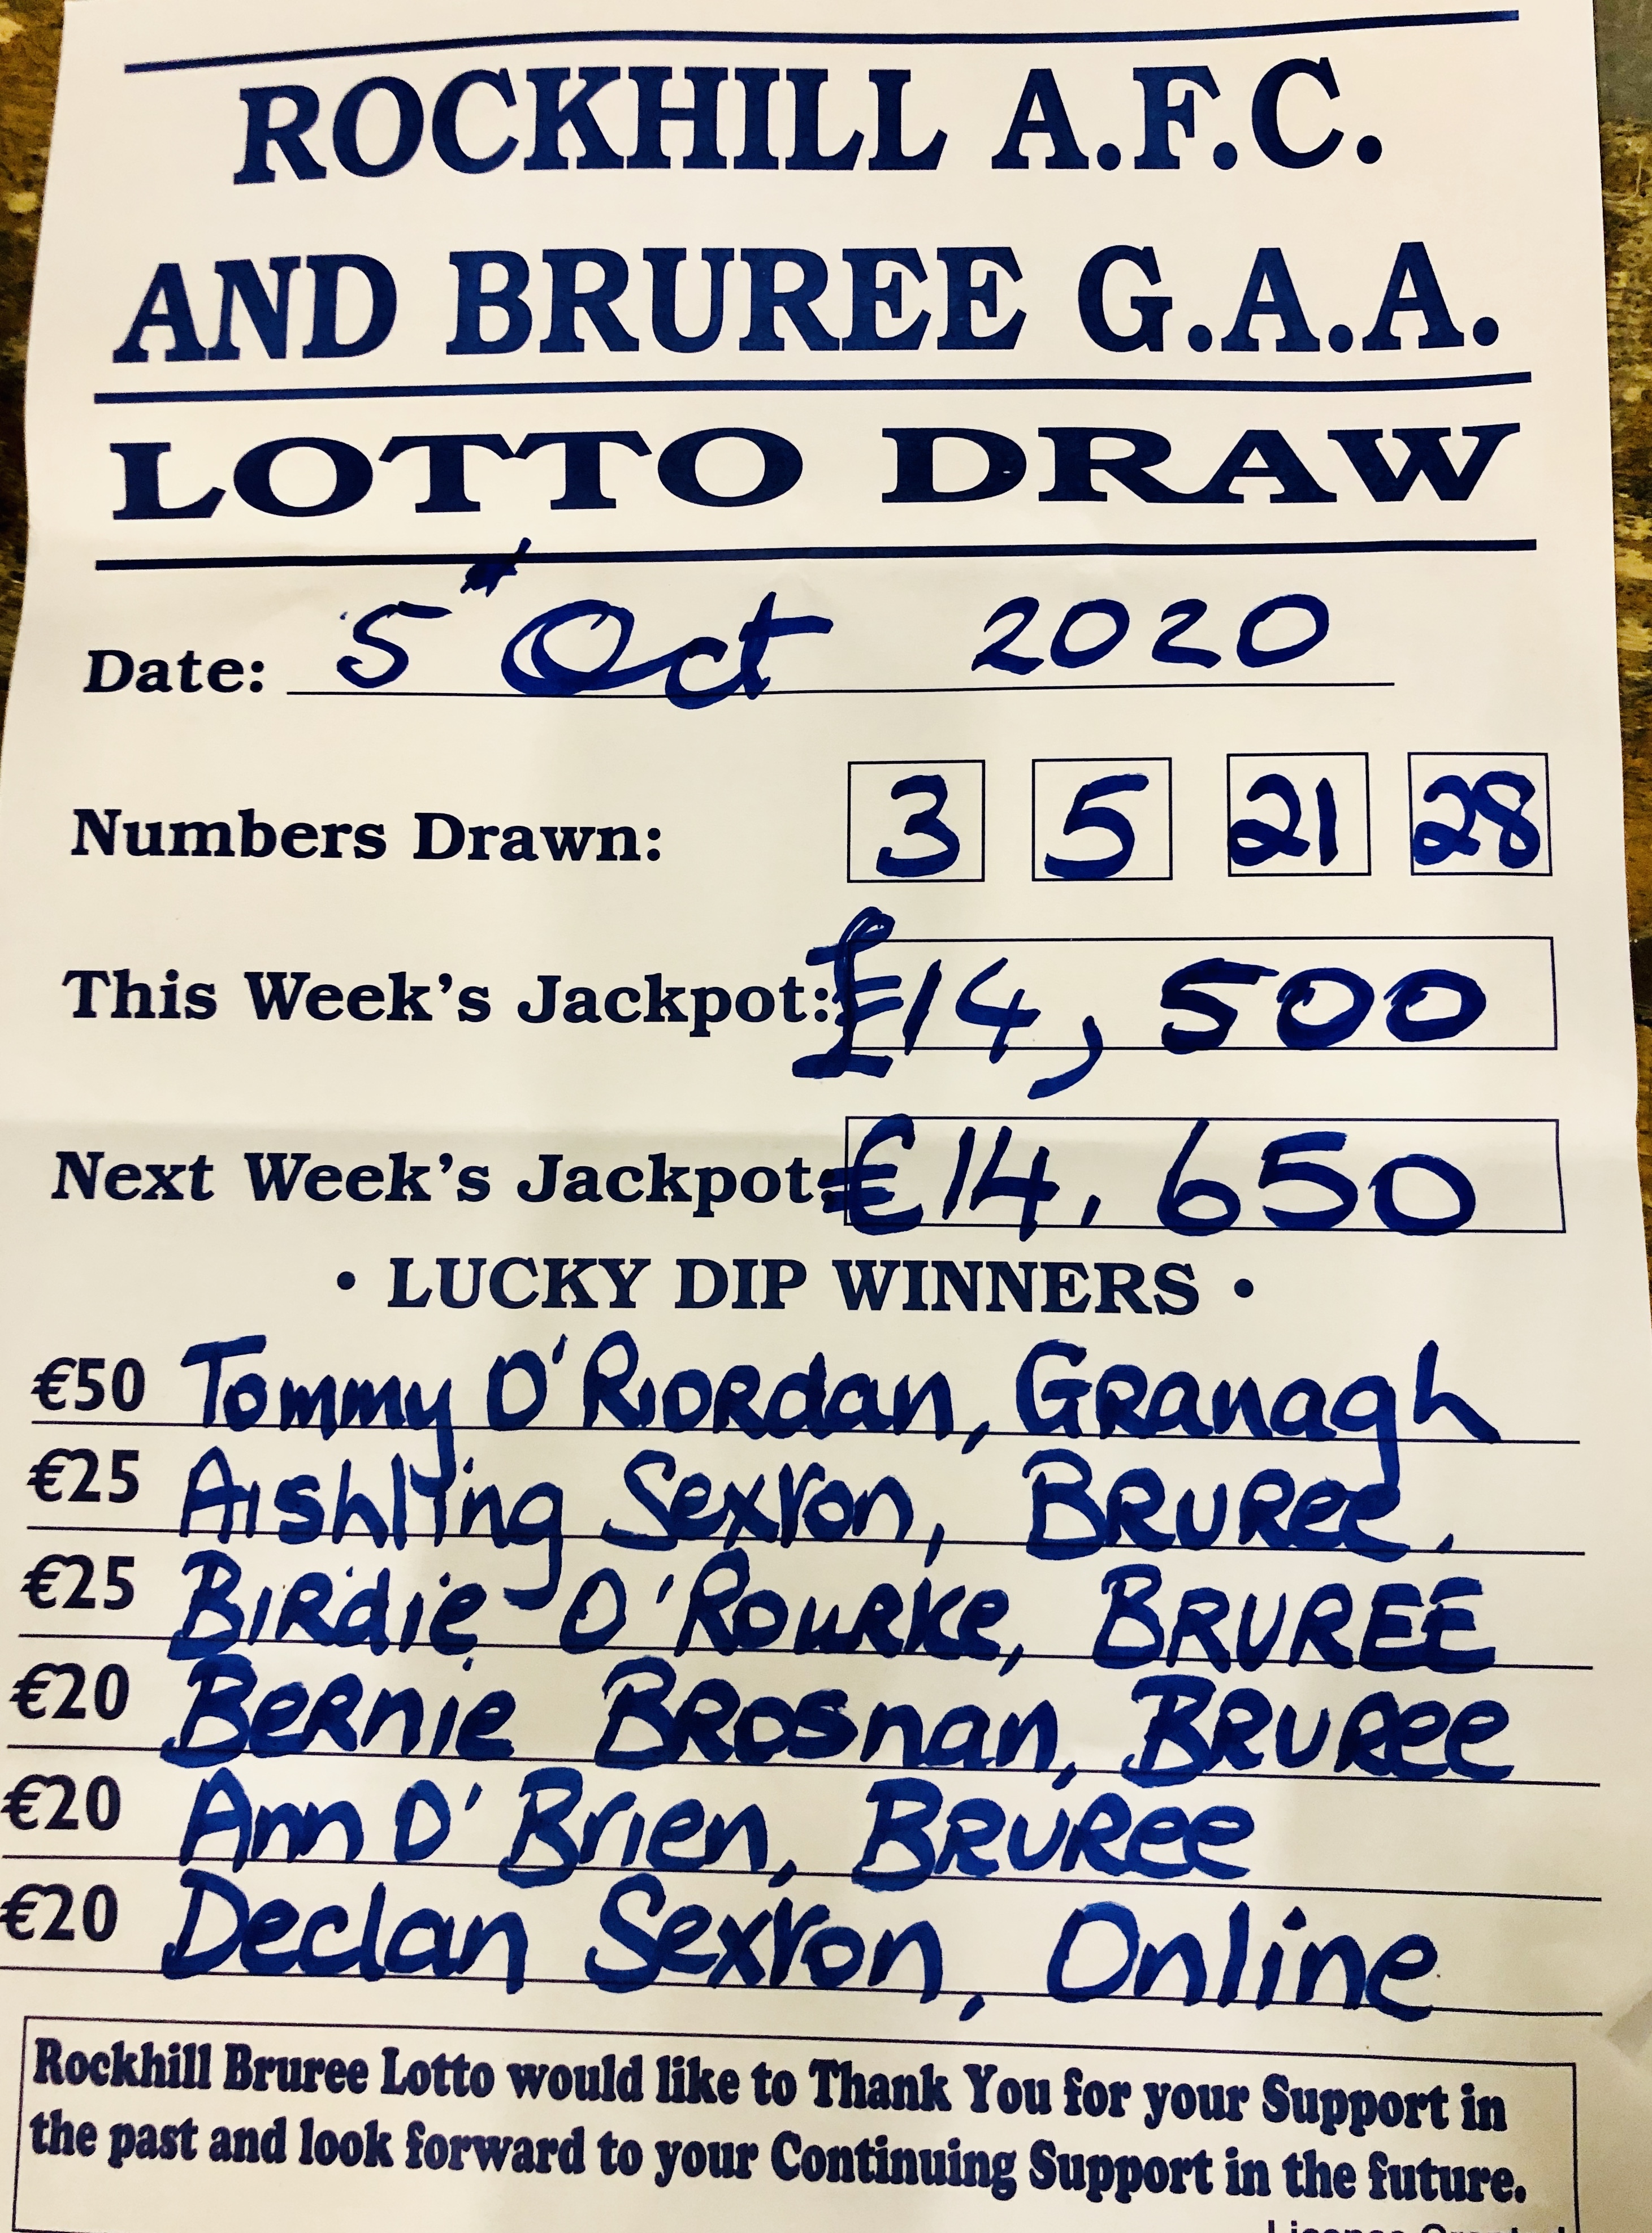 ROCKHILL A.F.C.
AND BRUREE G.A.A.
LOTTO DRAW
Date: 5th Oct 2020
Numbers Drawn: 3 5 21 28
This Week's Jackpot: £14,500
Next Week's Jackpot: €14,650
• LUCKY DIP WINNERS •
€50 Tommy O'Riordan, Granagh
€25 Aishling Sexton, Bruree.
€25 Birdie O'Rourke, BRUREE
€20 Bernie Brosnan, Bruree
€20 Ann O'Brien, Bruree
€20 Declan Sexton, Online
Rockhill Bruree Lotto would like to Thank You for your Support in
the past and look forward to your Continuing Support in the future.